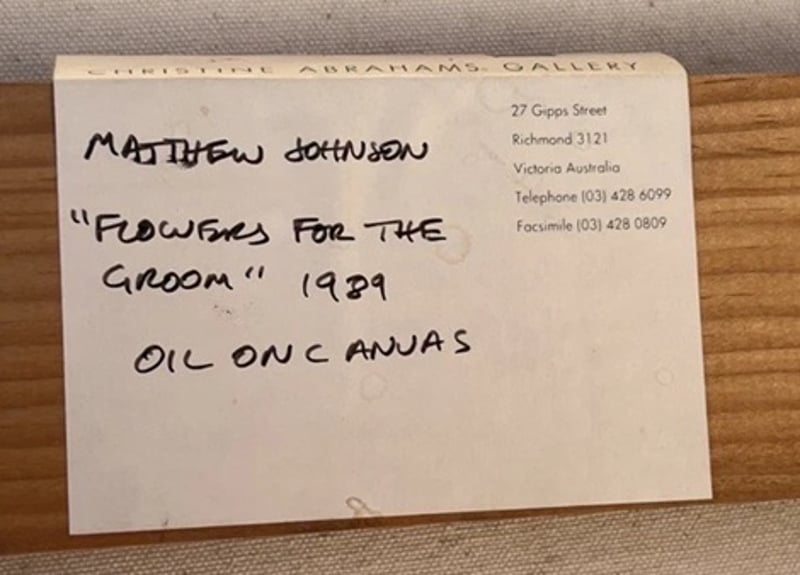 CHRISTINE ABRAHAMS GALLERY
27 Gipps Street
Richmond 3121
Victoria Australia
Telephone (03) 428 6099
Facsimile (03) 428 0809
MATTHEW JOHNSON
"FLOWERS FOR THE
GROOM" 1989
OIL ON CANVAS